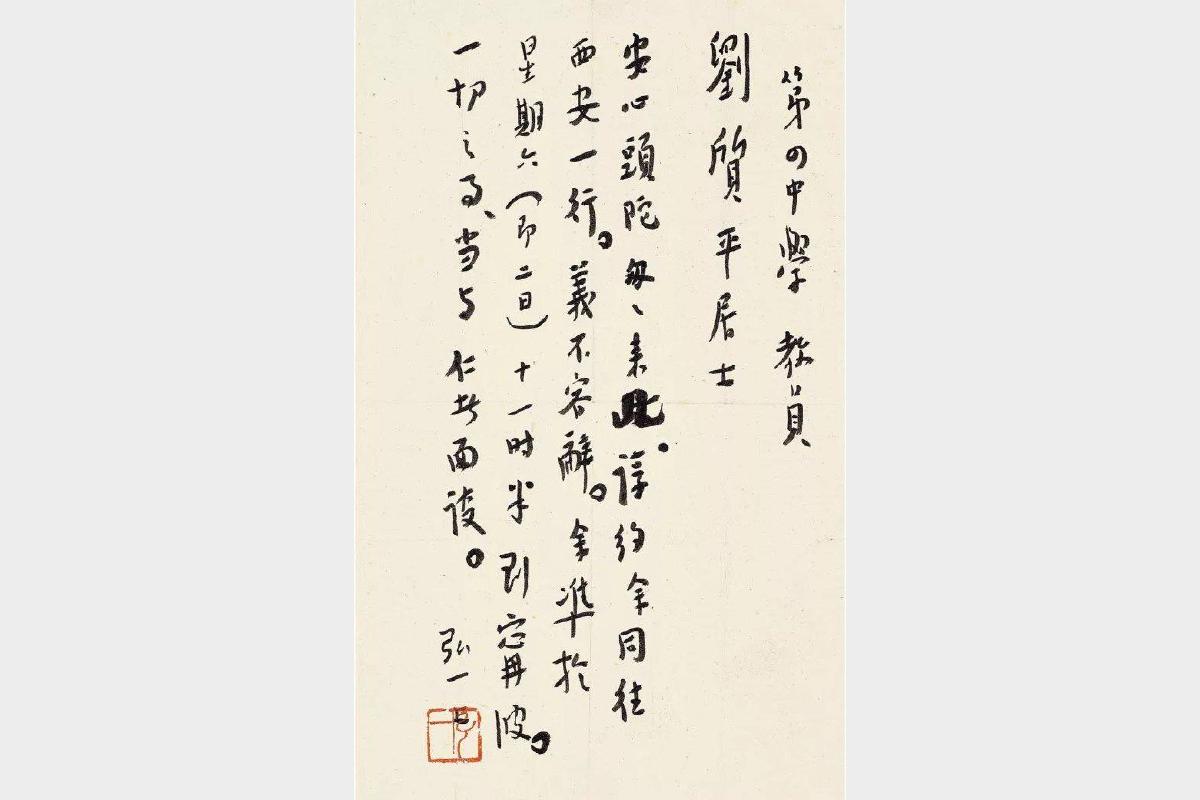 第四中學 教員
劉質平居士
安心頭陀匆匆来此。諄約余同往
西安一行。義不容辭。余準於
星期六(即二日)十一时半到寗波。
一切之事、当与仁者面談。
弘一